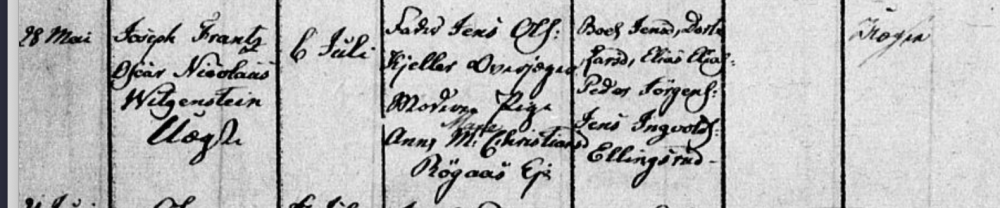 28 Mai
Joseph Frantz
Oscar Nicolaus
Witgenstein
Uægte
6 Juli
Fader Jens Ols:
Kjeller Overjæger
Moderen Pige
Marie
Anne M: Christiansd
Rögaas Ej:
Boel Jensd, Dorte
Larsd, Elias Elias:
Peder Jörgens:
Jens Ingvolds:
Ellingsrud -